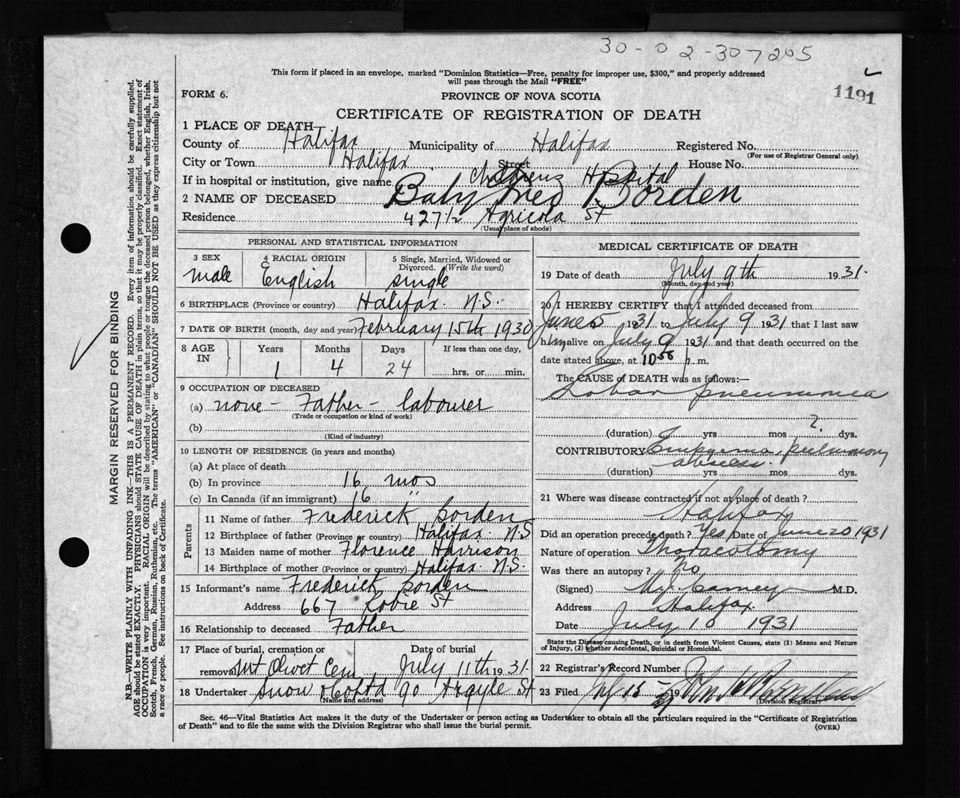 30-02-307205
This form if placed in an envelope, marked "Dominion Statistics—Free, penalty for improper use, $300," and properly addressed
will pass through the Mail "FREE"
1191
FORM 6.
PROVINCE OF NOVA SCOTIA
CERTIFICATE OF REGISTRATION OF DEATH
1 PLACE OF DEATH
County of Halifax Municipality of Halifax Registered No.
(For use of Registrar General only)
City or Town Halifax Street House No.
If in hospital or institution, give name Childrens Hospital
2 NAME OF DECEASED Baby Borden
Residence 427 1/2 Agricola St
(Usual place of abode)
PERSONAL AND STATISTICAL INFORMATION
3 SEX
male
4 RACIAL ORIGIN
English
5 Single, Married, Widowed or
Divorced. (Write the word)
single
6 BIRTHPLACE (Province or country) Halifax N.S.
7 DATE OF BIRTH (month, day and year) February 15th 1930
8 AGE IN
Years Months Days If less than one day,
1 4 24 hrs. or min.
9 OCCUPATION OF DECEASED
(a) none - Father - labourer
(Trade or occupation or kind of work)
(b)
(Kind of industry)
10 LENGTH OF RESIDENCE (in years and months)
(a) At place of death
(b) In province 16 mos
(c) In Canada (if an immigrant) 16 "
Parents
11 Name of father Frederick Borden
12 Birthplace of father (Province or country) Halifax N.S
13 Maiden name of mother Florence Harrison
14 Birthplace of mother (Province or country) Halifax N.S.
15 Informant's name Frederick Borden
Address 667 Robie St
16 Relationship to deceased Father
17 Place of burial, cremation or Date of burial
removal Mt Olivet Cem July 11th 1931.
18 Undertaker Snow & Co Ltd 90 Argyle St
(Name and address)
MEDICAL CERTIFICATE OF DEATH
19 Date of death July 9th 1931.
(Month, day and year)
20 I HEREBY CERTIFY that I attended deceased from
June 5 1931 to July 9 1931 that I last saw
him alive on July 9 1931 and that death occurred on the
date stated above, at 10 m.
The CAUSE OF DEATH was as follows:—
Lobar pneumonia
(duration) yrs mos 2. dys.
CONTRIBUTORY Empyema, pulmonary
abscess.
(duration) yrs mos dys.
21 Where was disease contracted if not at place of death?
Halifax
Did an operation precede death? Yes Date of June 20 1931
Nature of operation Thoracotomy
Was there an autopsy? no
(Signed) M.J. Carney M.D.
Address Halifax.
Date July 10 1931
State the Disease causing Death, or in death from Violent Causes, state (1) Means and Nature
of Injury, (2) whether Accidental, Suicidal or Homicidal.
22 Registrar's Record Number
23 Filed 19
(Division Registrar)
Sec. 46—Vital Statistics Act makes it the duty of the Undertaker or person acting as Undertaker to obtain all the particulars required in the "Certificate of Registration
of Death" and to file the same with the Division Registrar who shall issue the burial permit.
(OVER)
MARGIN RESERVED FOR BINDING
N.B.—WRITE PLAINLY WITH UNFADING INK—THIS IS A PERMANENT RECORD. Every item of information should be carefully supplied.
AGE should be stated EXACTLY. PHYSICIANS should STATE CAUSE OF DEATH in plain terms, so that it may be properly classified. Exact statement of
OCCUPATION is very important. RACIAL ORIGIN will be described by stating to what people or tongue the deceased person belonged, whether English, Irish,
Scotch, French, German, Russian, Ruthenian, etc. The terms "AMERICAN" or "CANADIAN" SHOULD NOT BE USED as they express citizenship but not
a race or people. See instructions on back of Certificate.